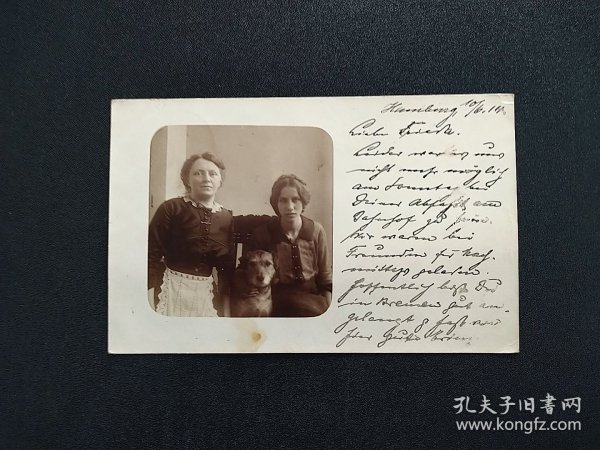 Hamburg, 10/6.14.
Liebe
Leider war es uns
nicht mehr möglich
am Sonntag
Deiner Abfahrt am
Bahnhof zu sein.
Wir waren bei
Freunden für Nach-
mittags geladen.
Hoffentlich bist Du
in Bremen gut an-
gelangt &
hier gute
孔夫子旧书网
www.kongfz.com